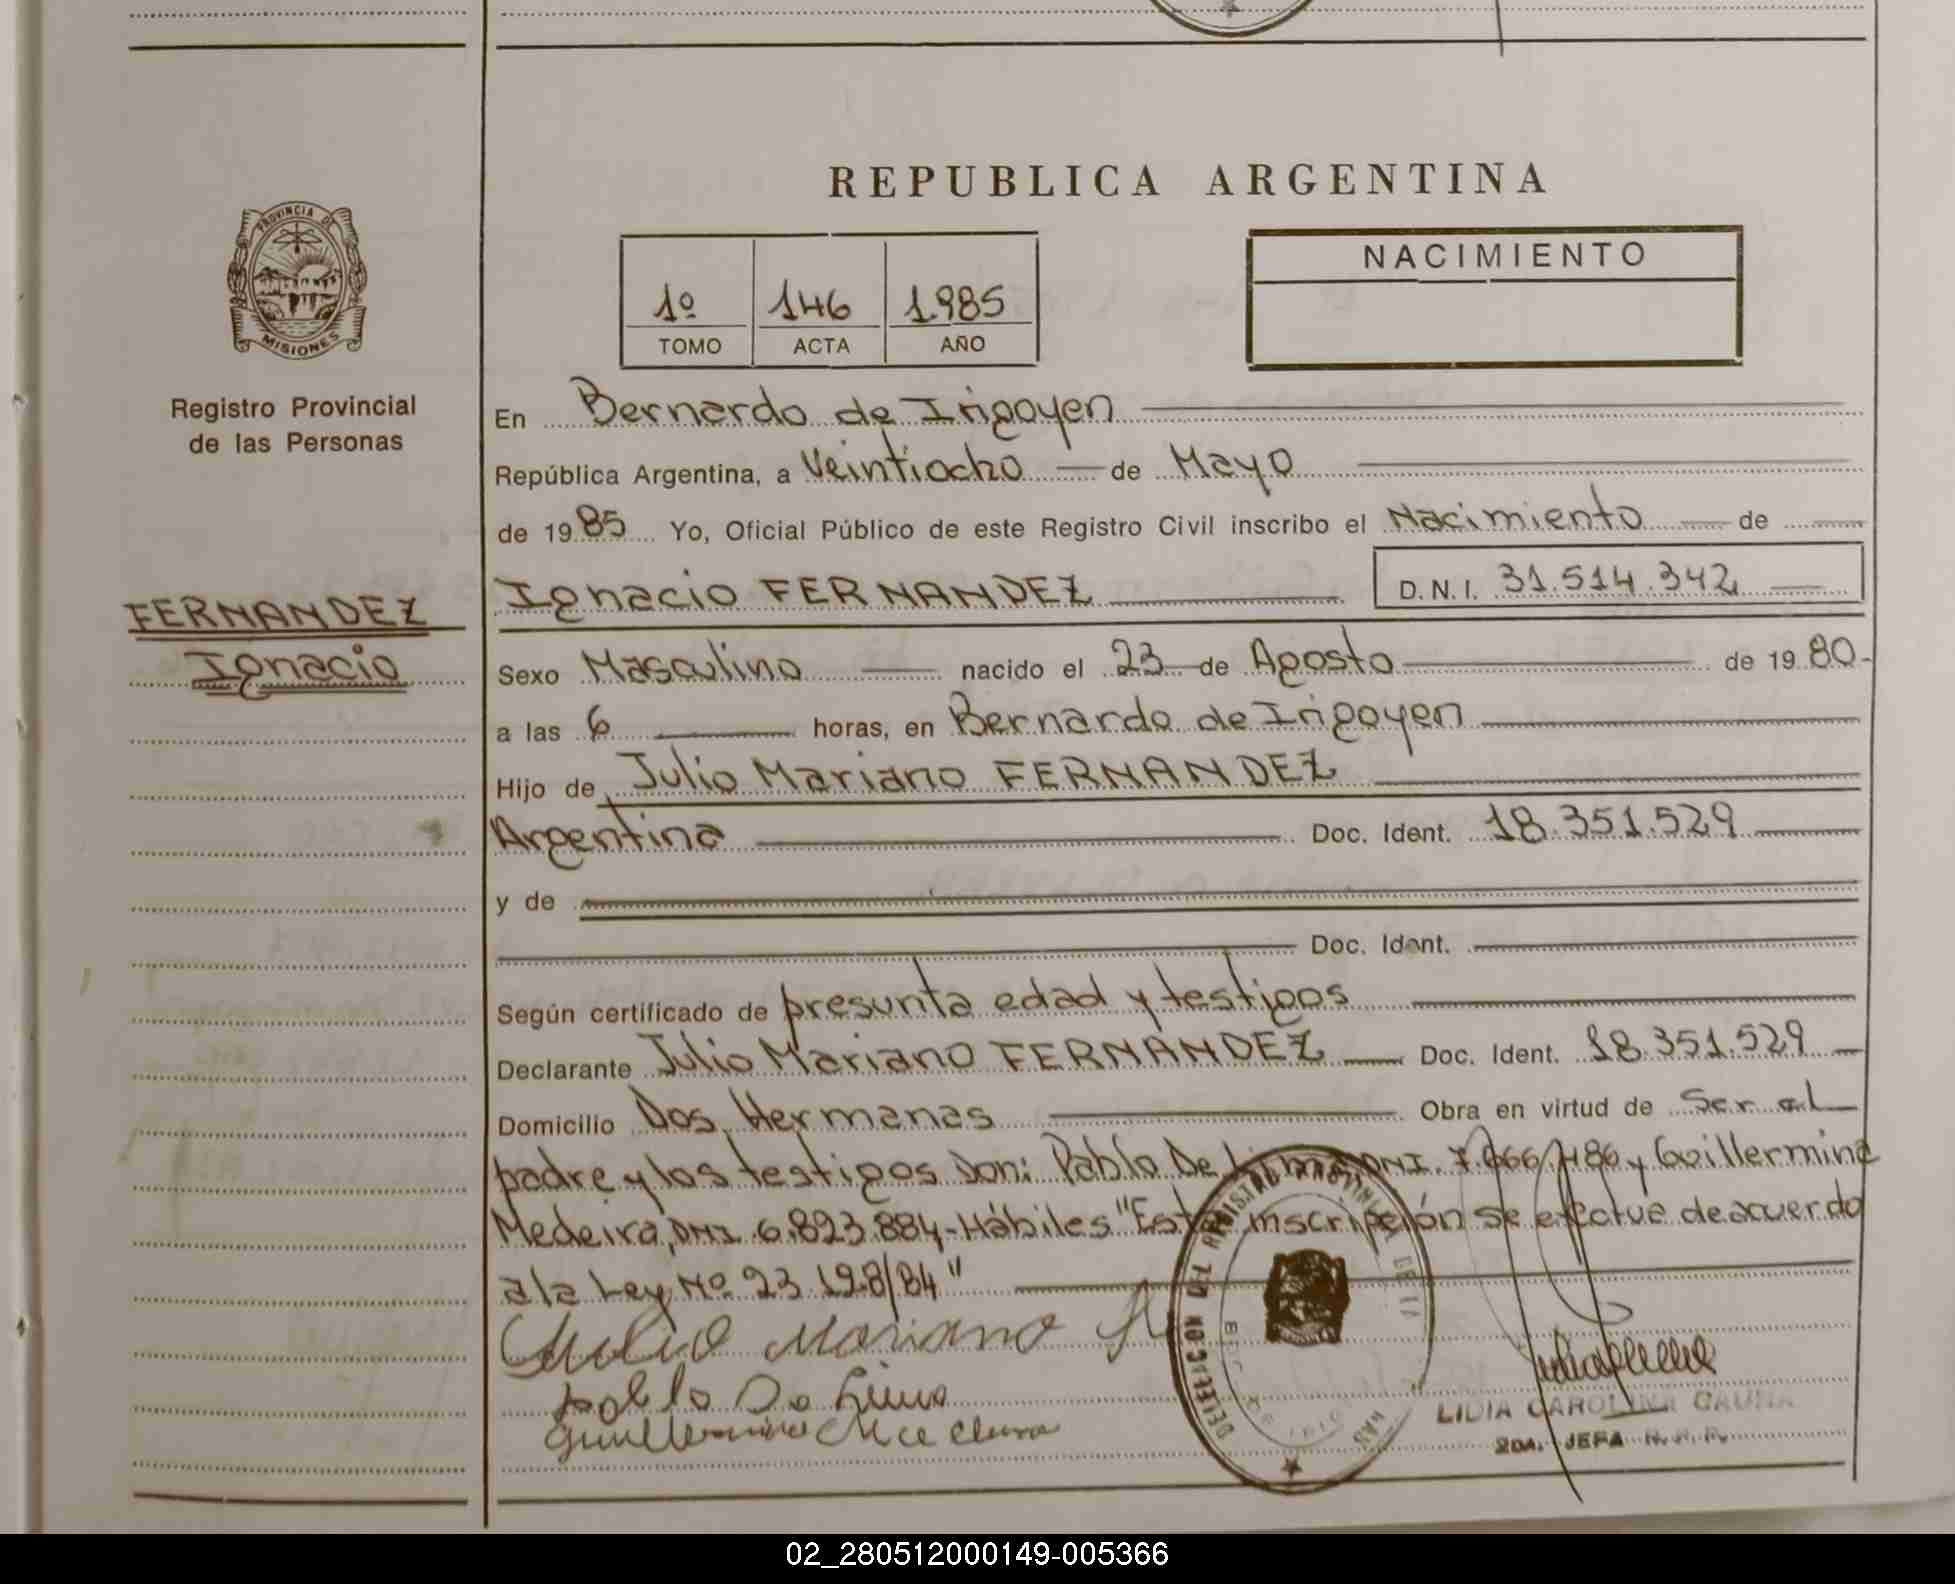 REPUBLICA ARGENTINA
PROVINCIA DE
MISIONES
Registro Provincial
de las Personas
FERNANDEZ
Ignacio
1º 146 1.985
TOMO ACTA AÑO
NACIMIENTO
En Bernardo de Irigoyen
República Argentina, a Veintiocho de Mayo
de 1985 Yo, Oficial Público de este Registro Civil inscribo el Nacimiento de
Ignacio FERNANDEZ D.N.I. 31.514.342
Sexo Masculino nacido el 23 de Agosto de 1980-
a las 6 horas, en Bernardo de Irigoyen
Hijo de Julio Mariano FERNANDEZ
Argentina Doc. Ident. 18.351.529
y de
Doc. Ident.
Según certificado de presunta edad y testigos
Declarante Julio Mariano FERNANDEZ Doc. Ident. 18.351.529
Domicilio Dos Hermanas Obra en virtud de Ser el
padre y los testigos Don: Pablo De Lima DNI. 7.666.486 y Guillermina
Medeira, DNI 6.823.884-Hábiles "Esta inscripción se efectue de acuerdo
a la Ley Nº 23.128/84"
Julio Mariano
Pablo De Lima
LIDIA CAROLINA GAUNA
2DA. JEFA R.P.P.
02_280512000149-005366